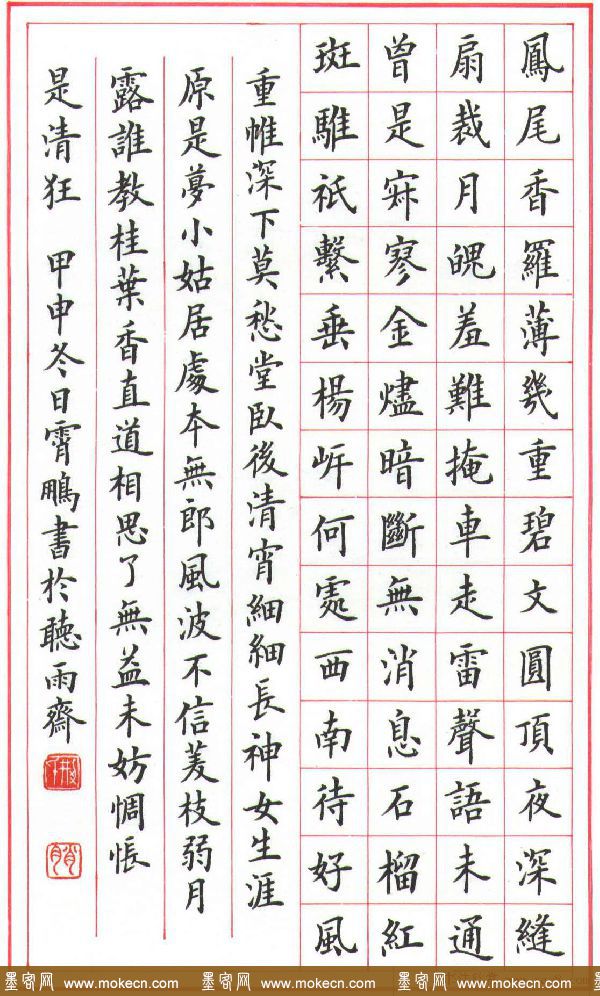 鳳尾香羅薄幾重碧文圓頂夜深縫
扇裁月魄羞難掩車走雷聲語未通
曾是寂寥金燼暗斷無消息石榴紅
斑騅祇繫垂楊岸何處西南待好風
重帷深下莫愁堂臥後清宵細細長神女生涯
原是夢小姑居處本無郎風波不信菱枝弱月
露誰教桂葉香直道相思了無益未妨惆悵
是清狂 甲申冬日霄鵬書於聽雨齋
墨客网 www.mokecn.com 墨客网 www.mokecn.com 墨客网 www.mokecn.com